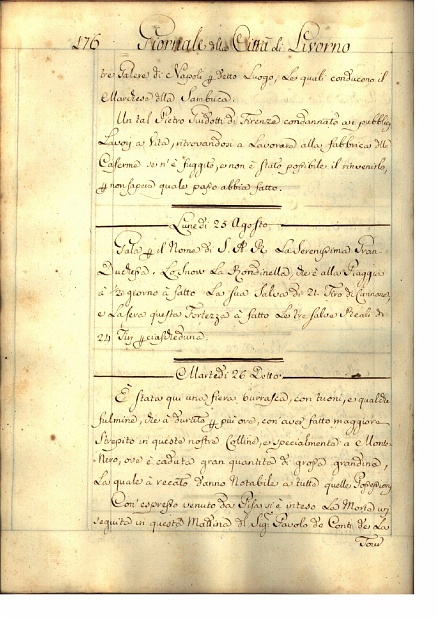 176 Giornale della Città di Livorno
tre Galere di Napoli p detto Luogo, Le quali conducono il
Marchese della Sambuca.
Un tal Pietro Guidotti di Firenze condannato ai pubblici
Lavori a Vita, ritrovandosi a Lavorare alla fabbrica delle
Caserme se n'è fuggito, e non è stato possibile il rinvenirlo,
p non sapersi quale passo abbia fatto.
Lunedì 25 Agosto
Gala p il Nome di S. A. R. La Serenissima Gran-
Duchessa. Lo Snow La Rondinella, che è alla Spiaggia
à ½ giorno à fatto La sua Salva di 21 Tiro di Cannone,
e La sera questa Fortezza à fatto Le tre salve Reali di
21 Tiri p ciascheduna.
Martedì 26 Detto
È stata qui una fiera burrasca, con tuoni, e qualche
fulmine, che à durato p più ore, con aver fatto maggiore
Strepito in queste nostre Colline, e specialmente a Monte-
Nero, ove è caduta gran quantità di grossa grandine,
La quale à recato danno Notabile a tutte quelle Possessioni
Con espresso venuto da Pisa si è inteso La Morte
seguita in questa Mattina di Sig. Pavolo de Conti de La